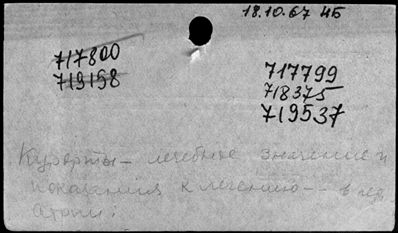 18.10.67 НБ
717800
719158
717799
718375
719537
Курорты - лечебное значение и
показания к лечению - - в пед
атрии.